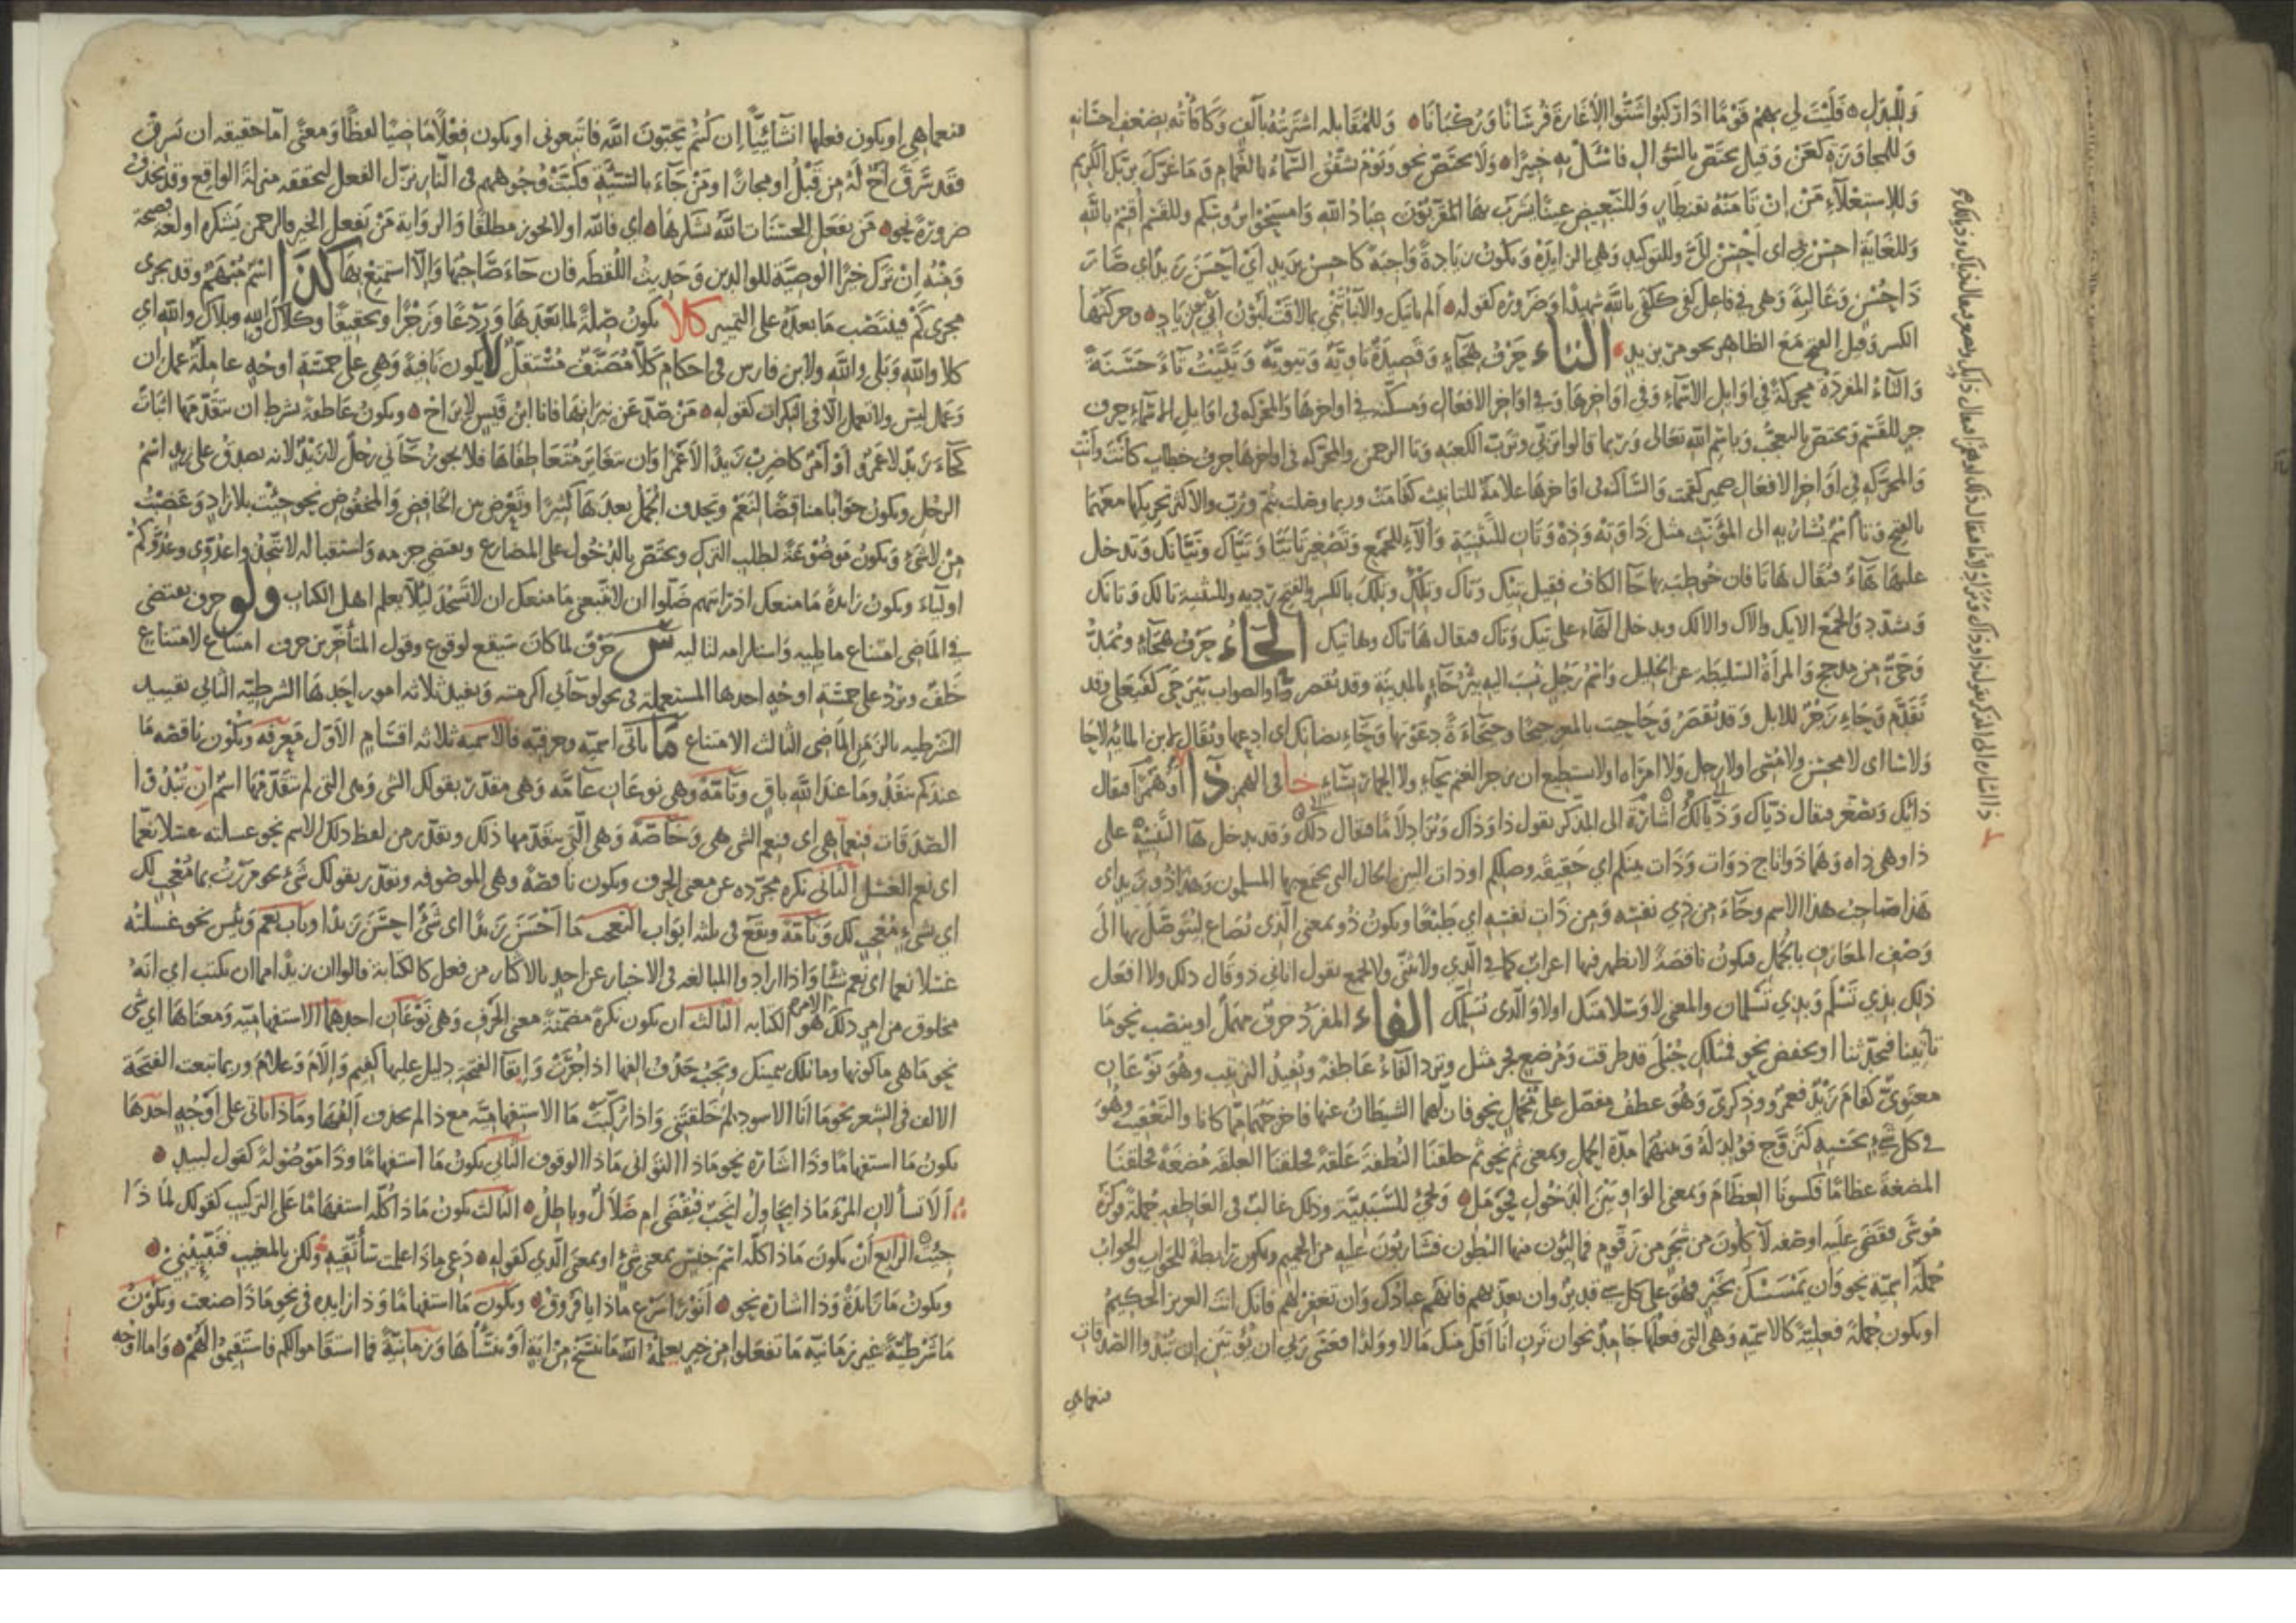 وَللبَدَل فَلَيْتَ لي بهِمُ قَوْمًا اذَا رَكبُوا شَنُّوا الاغَارَةَ فُرْسَانًا وَرُكْبَانَا وَللمُقَابله اشتَرَيتُهُ بألفٍ وَكافأتُه بضعْفِ احسَانه
وَللمجاوَزَه كعَنْ وَقيل يختصّ بالسّؤال فاسْئَلْ بهِ خبيرًا وَلا يختصّ نحو وَيَوْمَ تشقّقُ السّماءُ بالغمام وَمَا غرّكَ بربّكَ الكريم
وَللاستعْلآءِ مَنْ اِنْ تَامَنْهُ بقنطار وَللتّبعيض عينًا يَشرَبُ بهَا المقرّبُون عبَادُ الله وَامسَحُوا برُوسكم وللقسَم أقسِمُ بالله
وَللغايَة احسَنَ بي اى احسَنَ اليَّ وللتوكيد وَهي الزايدة وَيكون زيَادةً وَاجبَةً كاحسِنْ بزيدٍ أي احْسَنَ زيدٌ اي صَارَ
ذَا حُسْنٍ وَغَالبةً وَهي في فاعل كفى ككفَى بالله شهيدًا وَضَرورَه كقوله ألم ياتيك والانباءُ تنمى بما لاقت لبُونُ بَني زيَادِ وحركتهَا
الكسر وقيل الفتح مَعَ الظاهر نحو مرّ بزيد التاء حَرْفُ هجَاءٍ وَقَصيدَةٌ تاويَّة وَتيويَّة وَتيّيْتُ تاءً حَسَنَةً
وَالتآءُ المفردَة محركةٌ في اوَايل الاسْمآءِ وَفي اوَاخِرهَا وَفي اوَاخر الافعَال وَمسكّنه في اواخرهَا وَالمحركه في اوَايل الاسْمآءِ حرف
جر للقَسَم وَيختصّ بالتعجّب وَباسْم الله تعَالى وَربّما قالوا ترَبّي وَترَبِّ الكعبَه وَتَا الرحمن والمحرّكه في اواخرهَا حرفُ خطابٍ كانتَ وَأنتِ
وَالمحرَّكه في أوَاخر الافعَال ضمير كقمتَ وَالسَّاكنه في اوَاخرهَا علامَةٌ للتانيث كقامَتْ وربما وصلت بثمّ ورُبّ والاكثر تحريكها معَهمَا
بالفتح وَتا اسْمٌ يُشارُ به الى المؤنّث مثل ذَا وَتِهْ وَذِهْ وَتَانِ للتَّثنيَة وَأولآءِ للجَمع وَتَصْغيرُ تَا تَيَّا وَتَيَّاكَ وتَيَّالكَ وَتدخل
عليهَا هَآءُ فيُقال هَاتَا فان خُوطبَ بهَا جَآ الكاف فقيلَ تِيكَ وَتاكَ وَتِلْكَ وتَلكَ بالكسر وبالفتح رَديه وللتثنيه تانك وَتانّك
وَتشدّد وَالجمع اولئكَ والاكَ والالِكَ وَيدخل الهَاءُ على تيكَ وَتاكَ فيقال هَاتاك وهَاتيك الحَاءُ حَرْفُ هجَاءٍ وَيُمَدُّ
وَحَيٌّ من مذحج وَالمرأةُ السّليطَه عَن الخليل وَاسْمُ رَجُلٍ نُسبَ اليه بئرُ حَآءٍ بالمدينَة وقد تقصر وَالصَّواب بَيْرَحَى كفَيْعَلى وقد
تَقَدَّمَ وَحَاءِ زَجْرٌ للابل وَقد يُقصَرُ وَحَاحيتُ بالمعز حيحَاءً وَحَاحَاءَةً دعَوْتهَا وَحَاءِ بضانكَ اى ادعهَا وَيُقالُ لابن المائة لاحَا
وَلا سَا اى لا محسنٌ ولا مُسى او لا رجل وَلا امرَاه او لا يستطيع ان يزجر الغنم بحَاءٍ ولا الحمار بسَاءٍ خا في الهمز ذَا
ذايكَ وَيصَغَّر فيقالُ ذَيّاك وَذَيّالك اشَارَةٌ الى المذكر تقول ذا وَذاك وَتزَاد لامًا فيقال ذلك وَقد يدخل هَا التّنبيهِ على
ذا وهى ذاه وَهمَا ذَوَاتا ج ذوَات وَذَات بينكم اى حقيقَة وصلكم او ذات البين الحَال التي يجتمع بهَا المسلمون وَهذا ذو زيد اى
هَذا صَاحبُ هذا الاسم وجَآءَ من ذى نفسه وَمن ذات نفسه اي طيّعًا ويكونُ ذُو بمعنى الّذى تُصَاغ ليُتوَصَّلَ بهَا الى
وَصْفِ المعَارف بالجُمَل فيكون ناقصَةً لا يظهر فيها اعرابٌ كما في الّذى ولا تُثنَّى ولا تجمع تقول اتاني ذو قال ذلك ولا افعل
ذلك بذي تَسْلَمُ وَبذي تَسْلمَان والمعنى لا وَسَلامتك او لا وَالّذى يُسَلّمك الفاء المفرَدَةُ حَرفٌ مهمَل او ينصب نحو مَا
تاتينا فتحدّثنا او يخفض نحو فمثلكِ حُبْلى قد طرقت وَمُرضعٍ بجرّ مثل وَترد الفَآءُ عَاطفة وتُفيدُ الترتيب وهُوَ نَوْعَان
معنَويّ كقامَ زَيْدٌ فعَمروٌ وَذِكريّ وَهُوَ عطفُ مفصّل على مجملٍ نحو فازلّهمَا الشيطانُ عنهَا فاخرجَهُمَا ممّا كانا والتعقيبَ وهُوَ
في كل شيء بحَسَبه كتزَوّجَ فوُلدَ لَهُ وَبينهُمَا مدّة الحمل وبمعنى ثمّ نحو ثمّ خلقنَا النُّطفة عَلقةً فخلقنَا العلقَه مُضغَةً فخلقنَا
المضغَةَ عظامًا فكسونَا العظامَ وَبمعنى الوَاو بَيْنَ الدَخُولِ فحَوْمَلِ وَتجيءُ للسَّبَبِيَّة وذلك غالبٌ في العَاطفه جُملةً فوكزَهُ
مُوسَى فقَضَى عليه او صفَه لآكلُونَ من شجرٍ من زقّومٍ فمالئون منهَا البُطون فشَاربُونَ عليه منَ الحميم ويكون رابطةً للجوَاب والجوابُ
جُملةٌ اسْميّة نحو وَان يَمْسَسْكَ بخَيْرٍ فهُوَ على كل شيء قدير وان تعذّبهم فانّهم عبَادُكَ وَان تغفرْ لهم فانّك انتَ العزيز الحكيم
او يكون جُملةً فعليَّةً كالاسميّه وَهى التي فعلُهَا جَامِدٌ نحو ان تَرَنِ انَا اقلّ منك مَالا وولدًا فعَسَى رَبى ان يُؤتيَنِ ان تُبْدوا الصّدقات
فنعماهي
ذا اشاره الى المذكر تقول ذا وذاك وتزاد لامًا فيقال ذلك او همزًا فيقال ذائك ويصغر فيقال ذياك وذيالك
فنعما هي او يكون فعلها انشآئيًّا إن كُنتُم تحبّون اللهَ فاتبعونى او يكون فعْلًا مَاضيًا لفظًا وَمعنًى امّا حَقيقه ان يَسرق
فقَد سَرَقَ أخٌ لَهُ من قَبْلُ او مجازًا وَمَنْ جَآءَ بالسّيّئَة فكُبّتْ وُجوههم في النّار نزّل الفعل لتحققه منزلة الواقع وَقد تُحذَف
ضرورَةً نحو مَن يفعَل الحسَنَات اللهُ يشكرهَا اي فالله او لا يجوز مطلقًا وَالروَاية مَنْ يَفعل الخير فالرحمن يَشكره او لغة فصيحَة
وَمنْهُ انْ تَرَكَ خيرًا الوصيَّة للوالدين وَحَديثُ اللُّقطَه فان جَاءَ صَاحبُهَا وَالّا استمتع بهَا كذَا اسْمٌ مُبْهَمٌ وقد يجرى
مجرى كَمْ فيَنتَصب مَا بعدَهُ على التمييز كلّا يكون صلةً لما بَعْدَهَا وَرَدْعًا وَزَجْرًا وتحقيقًا وكلّاكَ وَاللهِ وبلاكَ والله اى
كلّا والله وَبَلى والله ولابن فارس في احكام كَلّا مُصَنّفٌ مُسْتقلّ لا يكون نافيةً وَهي على خمسَة اوجُه عاملةٌ عمل ان
وَعمل ليسَ ولا تعمل الّا في النكرات كقوله مَنْ صَدَّ عَنْ نيرانِهَا فانا ابنُ قيسٍ لا بَرَاحُ ويكونُ عَاطفةً بشرط ان يتقدّمهَا اثبَاتٌ
كجَآءَ زيدٌ لا عمرٌو أوْ أمْرٌ كاضرب زيدًا لا عَمْرًا وَان يتغايَر مُتعَاطفَاهَا فلا يجوز جَآءَني رَجُلٌ لا زيدٌ لانه يصدقُ على زيدٍ اسْمُ
الرجُل ويكون جوَابًا مناقضًا لنَعَمْ وتحذف الجُمَلُ بعدَهَا كثيرًا وتُعْرض بين الخَافض وَالمخفوض نحو جئت بلا زادٍ وَغضبْتُ
مِنْ لا شَىءٍ وَيكونُ مَوضُوعَةً لطلب التّركِ وتختصّ بالدّخُول على المضارع وتقتضى جزمه وَاستقبالَه لا تتخذوا عَدُوّى وعَدُوَّكُمْ
اوليآءَ وَيكون زايدةً مَا منعَكَ اذ رايتهم ضَلّوا ان لا تتّبعَنِى مَا منعكَ ان لا تَسْجُدَ لئلّا يعلم اهل الكتاب ولو حرفٌ يقتضى
في الماضى امتناع ما يليه وَاستلزامه لتاليه حَرْفٌ لما كان سَيقع لوقوع وقول المتأخرين حرف امتناع لامتناع
خَلفٌ وتردُ على خمسَة اوجُه احدهَا المستعمَلة في نحو لو جَآءنى اكرمته وَتفيد ثلاثه امور احَدهَا الشرطيّه الثانى تقييد
الشرطيه بالزّمَن المَاضى الثالث الامتناع ما يأتى اسميّه وحرفيّه فالاسميه ثلاثه اقسَام الاوّل معرِفَه ويكون ناقصَه مَا
عندَكم ينفدُ ومَا عندَ اللهِ باقٍ وتامّةً وَهي نوعَان عَامّه وَهي مقدّرة بقولك الشى وَهى التى لم يتقدّمهَا اسْمٌ ان تُبْدُوا
الصّدَقاتِ فنِعمّا هي اى فنعم الشى هي وَخَاصّة وَهى التى يتقدّمها ذلك وتقدَّر من لفظ ذلك الاسم نحو غسلته غسلا نعمّا
اى نعم الغسْل الثانى نكرة مجرّده عن معنى الحرف ويكون ناقصَةً وهى الموصوفه وتقدّر بقولك شىءٍ نحو مررت بما مُعجبٍ لك
اى بشىءٍ مُعْجبٍ لك وَتامّة وتقع في ثلثه ابوَاب التعجب مَا أحْسَنَ زيدًا اى شىءٌ احسَنَ زيدًا وبابُ نعم وَبئسَ نحو غسلته
غسْلا نعمّا اى نعم شيئًا وَاذا ارَادوا المبالغه في الاخبار عن احدٍ بالاكثار من فعل كالكتابة قالوا ان زيدًا مما ان يكتب اى انهُ
مخلوق من امرٍ ذلك الامر هُو الكتابه الثالث ان يكون نكرةً مضمَّنةً معنى الحرف وَهي نوْعَان احدهُما الاستفهاميّه وَمعنَاهَا اى شى
نحو مَا هي ما لونهَا وما تلك بيمينك ويجبُ حَذْفُ الفها اذا جُرَّتْ وَابقآ الفتحة دليل عليها كفيمَ وَإلامَ وَعَلامَ وربما تبعت الفتحَة
الالف في الشعر نحو يا ابا الاسود لمْ خَلّفْتَني وَاذا رُكّبَتْ مَا الاستفهاميّه مع ذا لم يحذف الفُها ومَاذا يأتى على أوْجُه احدهَا
يكون مَا استفهامًا وذا اشَارة نحو مَاذا التوَانى مَاذا الوقوف الثّانى يكون مَا استفهامًا وذَا مَوْصُولةً كقول لبيد
ألَا تسألان المرءَ مَاذا يحَاولُ انَحبٌ فيُقْضَى ام ضَلالٌ وباطلُ الثالث يكون مَاذا كلّه استفهَامًا على التركيب كقولك لمَاذَا
جئت الرابع أنْ يكون مَاذا كلّه اسْمَ جنسٍ بمعنى شىءٍ او بمعنى الّذى كقوله دَعى مَاذَا علمت سأتّقيه ولكن بالمغيَّب فنبّئيني
ويكون مَا زايدةً وَذا اشارة نحو أنَوْرًا سَرْعَ ماذا يا فرُوقُ ويكون مَا استفهامًا وَذا زايده في نحو مَاذا صنعتَ ويكون
مَا شَرْطيّةً غير زمَانيّه مَا تفعَلوا من خيرٍ يعلمْهُ اللهُ مَا ننسَخْ من ايةٍ أوْ ننسأهَا وَزمَانيّةً فما استقامُوا لكم فاستَقيمُوا لَهُمْ وَامّا اوجُه